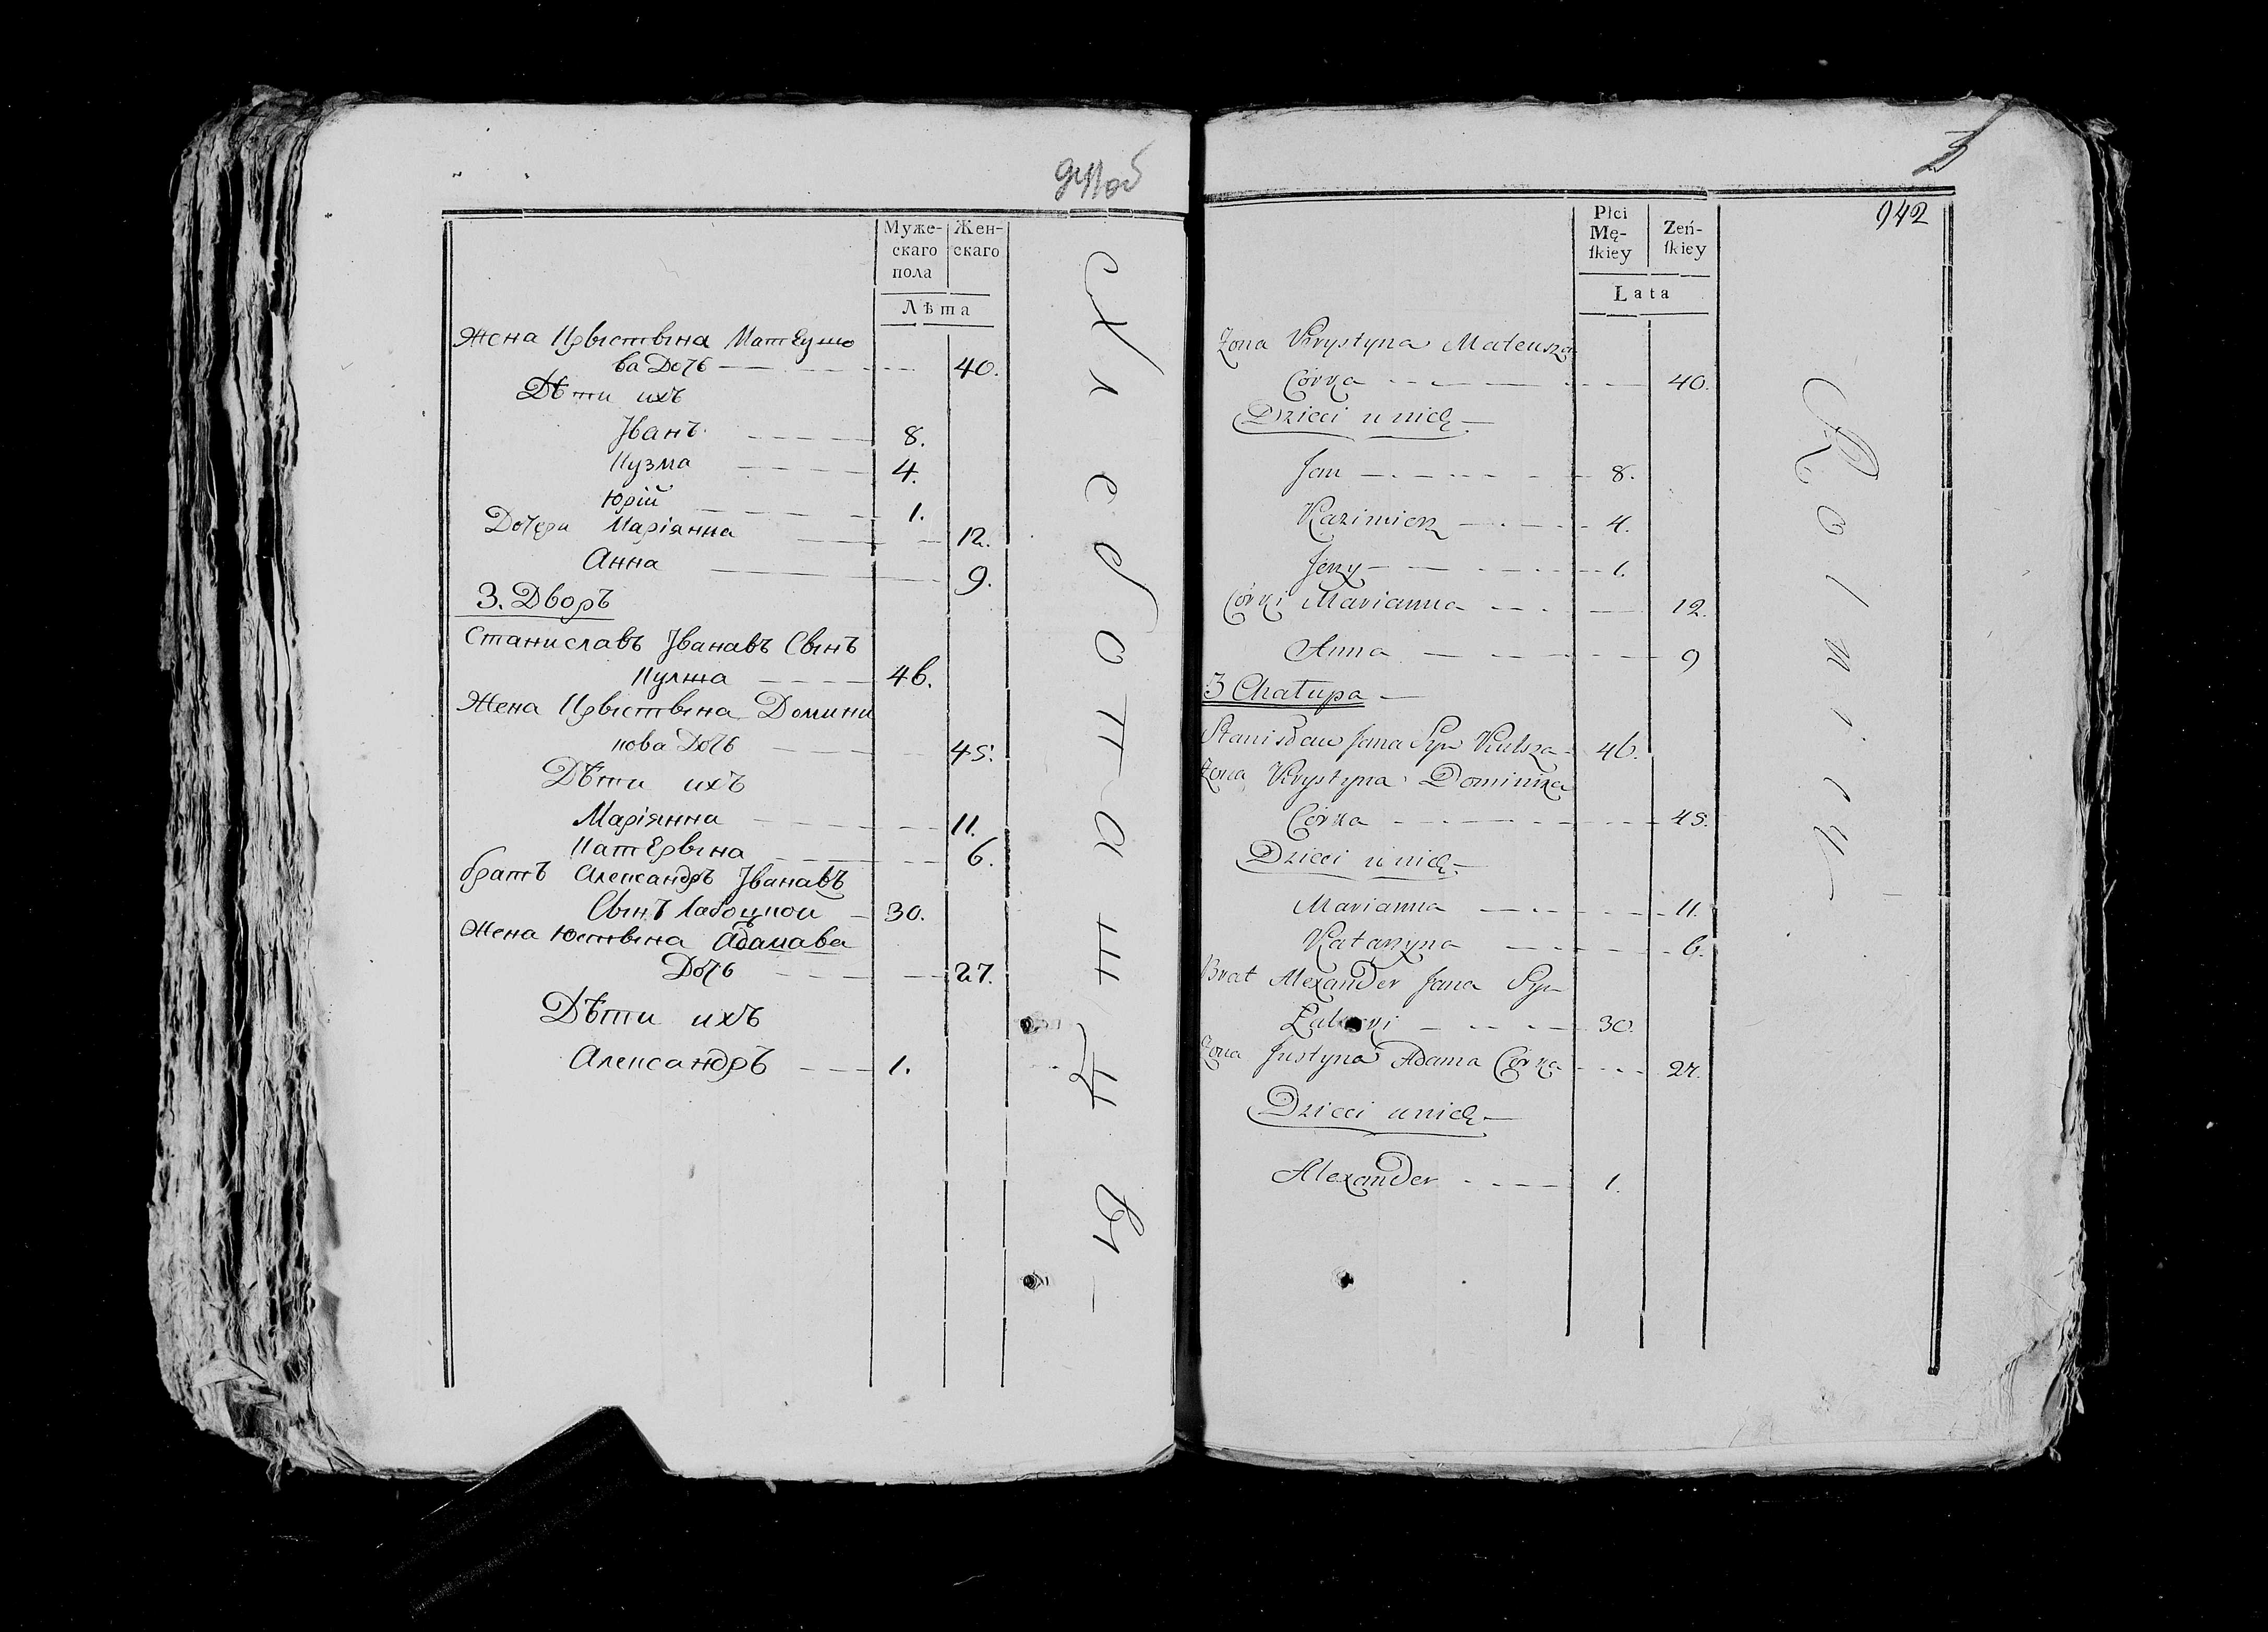 Муже-
скаго
пола
Жен-
скаго
Лѣта
Жена Крыстына Матеушо
ва Дочь 40.
Дѣти ихъ
Іванъ 8.
Кузма 4.
Юрій 1.
Дочери Маріянна 12.
Анна 9.
3. Дворъ
Станиславъ Іванавъ Сынъ
Кулша 46.
Жена Крыстына Домини
кова Дочь 45.
Дѣти ихъ
Маріянна 11.
Катерына 6.
братъ Александръ Іванавъ
Сынъ Лабоцкои 30.
Жена Юстына Адамава
Дочь 27.
Дѣти ихъ
Александръ 1.
Хлебопашцы
942
Płci
Mę-
ſkiey
Zeń-
ſkiey
Lata
Zona Krystyna Mateusza
Córka 40.
Dzieci u nich
Jan 8.
Kazimierz 4.
Jerzy 1.
Córki Marianna 12.
Anna 9
3 Chałupa
Stanisław Jana Syn Kulsza 46.
Zona Krystyna Dominika
Córka 45.
Dzieci u nich
Marianna 11.
Katarzyna 6.
Brat Alexander Jana Syn
Łabocki 30.
Zona Justyna Adama Córka 27.
Dzieci u nich
Alexander 1.
Rolnicy